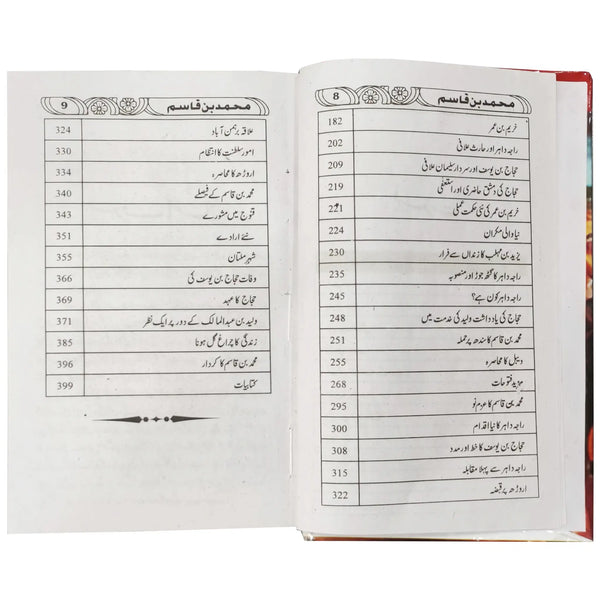 محمد بن قاسم 8
خریم بن عمر 182
راجہ داہر اور حارث علافی 202
حجاج بن یوسف اور سردار سلیمان علافی 209
حجاج کی دمشق حاضری اور استعفیٰ 219
خریم بن عمر کی نئی حکمت عملی 221
نیا والی مکران 224
یزید بن مہلب کا زنداں سے فرار 230
راجہ داہر کا گٹھ جوڑ اور منصوبہ 235
راجہ داہر کون ہے؟ 245
حجاج کی یادداشت ولید کی خدمت میں 248
محمد بن قاسم کا سندھ پر حملہ 251
دیبل کا محاصرہ 255
مزید فتوحات 268
محمد بن قاسم کا عزم نو 295
راجہ داہر کا نیا اقدام 300
حجاج بن یوسف کا خط اور مدد 308
راجہ داہر سے پہلا مقابلہ 315
اروڑھ پر قبضہ 322
محمد بن قاسم 9
علاقہ برہمن آباد 324
امور سلطنت کا انتظام 330
اروڑھ کا محاصرہ 334
محمد بن قاسم کے فیصلے 340
قنوج میں مشورے 343
نئے ارادے 351
شہر ملتان 355
وفات حجاج بن یوسف کی 366
حجاج کا عہد 369
ولید بن عبدالمالک کے دور پر ایک نظر 371
زندگی کا چراغ گل ہونا 385
محمد بن قاسم کا کردار 396
کتابیات 399